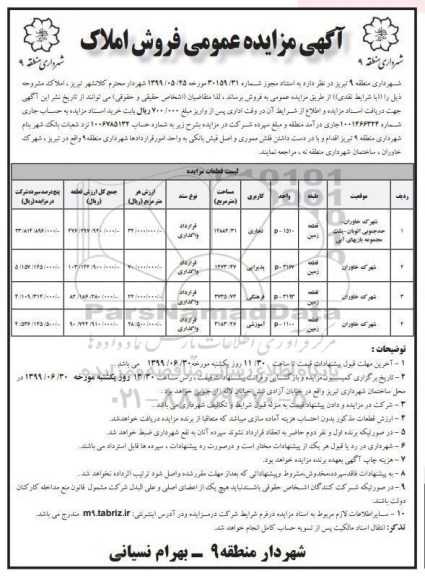 آگهی مزایده عمومی فروش املاک
شهرداری منطقه ۹
شهرداری منطقه ۹
شهرداری منطقه ۹ تبریز در نظر دارد به استناد مجوز شماره ۳۰۱۵۹/۳۱ مورخه ۱۳۹۹/۰۵/۲۵ شهردار محترم کلانشهر تبریز ، املاک مشروحه
ذیل را ((با شرایط نقدی)) از طریق مزایده عمومی به فروش برساند ، لذا متقاضیان (اشخاص حقیقی و حقوقی) می توانند از تاریخ نشر این آگهی
جهت دریافت اسناد مزایده و اطلاع از شرایط آن در وقت اداری پس از واریز مبلغ ۷۰۰/۰۰۰ ریال بابت خرید اسناد مزایده به حساب جاری
شماره ۱۰۰۱۴۶۶۳۲۴ جاری درآمد منطقه و مبلغ سپرده شرکت در مزایده بشرح زیر به شماره حساب ۱۰۰۶۷۸۵۱۳۴ نزد شعبات بانک شهر بنام
شهرداری منطقه ۹ تبریز اقدام و با در دست داشتن فلش مموری و اصل فیش بانکی به واحد امور قراردادها شهرداری منطقه ۹ واقع در تبریز ، شهرک
خاوران ، ساختمان شهرداری منطقه نه ، مراجعه نمایند.
لیست قطعات مزایده
ردیف موقعیت واحد کاربری مساحت (مترمربع) نوع سند ارزش هر متر مربع (ریال) جمع کل ارزش قطعه (ریال) پنج درصد سپرده شرکت در مزایده (ریال)
۱ شهرک خاوران، حدجنوبی اتوبان - پشت مجموعه بازیهای آبی قطعه زمین p-۱۵۱۰ تجاری قرارداد واگذاری
۲ شهرک خاوران قطعه زمین p-۳۱۶۷ پذیرایی ۱۴۷۳/۴۷ قرارداد واگذاری ۷۰/۰۰۰/۰۰۰/- ۱۰۳/۱۴۲/۹۰۰/۰۰۰/- ۵/۱۵۷/۱۴۵/۰۰۰/-
۳ شهرک خاوران قطعه زمین p-۳۱۹۳ فرهنگی ۳۷۳۵/۷۴ قرارداد واگذاری ۲۲/۰۰۰/۰۰۰/- ۸۲/۱۸۶/۲۸۰/۰۰۰/- ۴/۱۰۹/۳۱۴/۰۰۰/-
۴ شهرک خاوران قطعه زمین p-۱۱۰۰ آموزشی ۳۱۸۳/۲۶ قرارداد واگذاری ۲۸/۵۰۰/۰۰۰/- ۹۰/۷۲۲/۹۱۰/۰۰۰/- ۴/۵۳۶/۱۴۵/۵۰۰/-
توضیحات :
۱ - آخرین مهلت قبول پیشنهادات قیمت تا ساعت ۱۱/۳۰ روز یکشنبه مورخه ۱۳۹۹/۰۶/۳۰ می باشد .
۲ - تاریخ برگزاری کمیسیون مزایده و بازگشایی و قرائت پیشنهادات قیمت ، راس ساعت ۱۳/۳۰ روز یکشنبه مورخه ۱۳۹۹/۰۶/۳۰ در
محل ساختمان شهرداری تبریز واقع در خیابان آزادی
۳ - شرکت در مزایده و دادن پیشنهاد قیمت به منزله قبول شرایط و تکالیف شهرداری می باشد .
۴ - ارزش قطعات مذکور بدون احتساب هزینه آماده سازی میباشد که متعاقبا از برنده مزایده دریافت خواهد شد.
۵ - در صورتیکه برنده اول و نفر دوم حاضر به انعقاد قرارداد نشوند سپرده آنان به نفع شهرداری ضبط خواهد شد.
۶ - شهرداری در رد یا قبول هر یک از پیشنهادات مختار است و درصورت رد پیشنهادات ، سپرده ها قابل استرداد می باشند.
۷ - هزینه چاپ آگهی بعهده برنده مزایده خواهد بود.
۸ - به پیشنهادات فاقد سپرده، مخدوش، مشروط و پیشنهاداتی که بعداز مهلت مقرر شده واصل شود ترتیب اثر داده نخواهد شد .
۹ - در صورتیکه شرکت کنندگان اشخاص حقوقی باشند نباید هیچ یک از اعضای اصلی و علی البدل شرکت مشمول قانون منع مداخله کارکنان
دولت باشند.
۱۰ - سایر اطلاعات لازم مربوط به اسناد مزایده در فرم شرایط شرکت در مزایده و در آدرس اینترنتی: m9.tabriz.ir مندرج می باشد.
تذکر: انتقال اسناد مالکیت پس از تسویه حساب کامل انجام خواهد شد.
شهردار منطقه ۹ ــ بهرام نسیانی